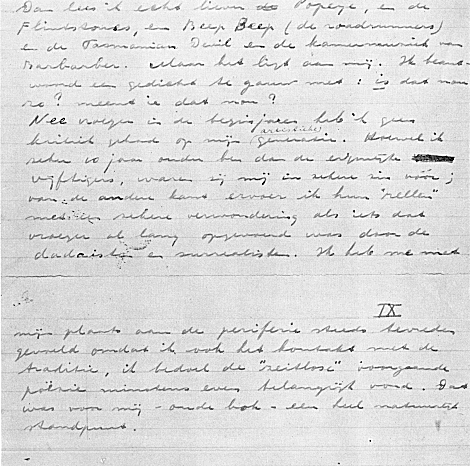 Dan lees ik echt liever Popeye, en de
Flintstones, en Beep Beep (de roadrunners)
en de Tasmanian Devil en de kamermuziek van
Barbarber. Maar het ligt aan mij. Ik beant-
woord een gedicht te gauw met: is dat nou
zo? meent ie dat nou?
Nee vroeger in de beginjaren heb ik geen
kritiek gehad op mijn (artistieke) generatie. Hoewel ik
zeker 10 jaar ouder ben dan de eigenlijke
vijftigers, waren zij mij in zekere zin vóór;
van de andere kant ervoer ik hun "rellen"
met een zekere verwondering als iets dat
vroeger al lang opgevoerd was door de
dadaisten en surrealisten. Ik heb me met
IX
mijn plaats aan de periferie steeds tevreden
gevoeld omdat ik ook het kontakt met de
traditie, ik bedoel de "zeitlose" voorgaande
poëzie minstens even belangrijk vond. Dat
was voor mij - oude bok - een heel natuurlijk
standpunt.